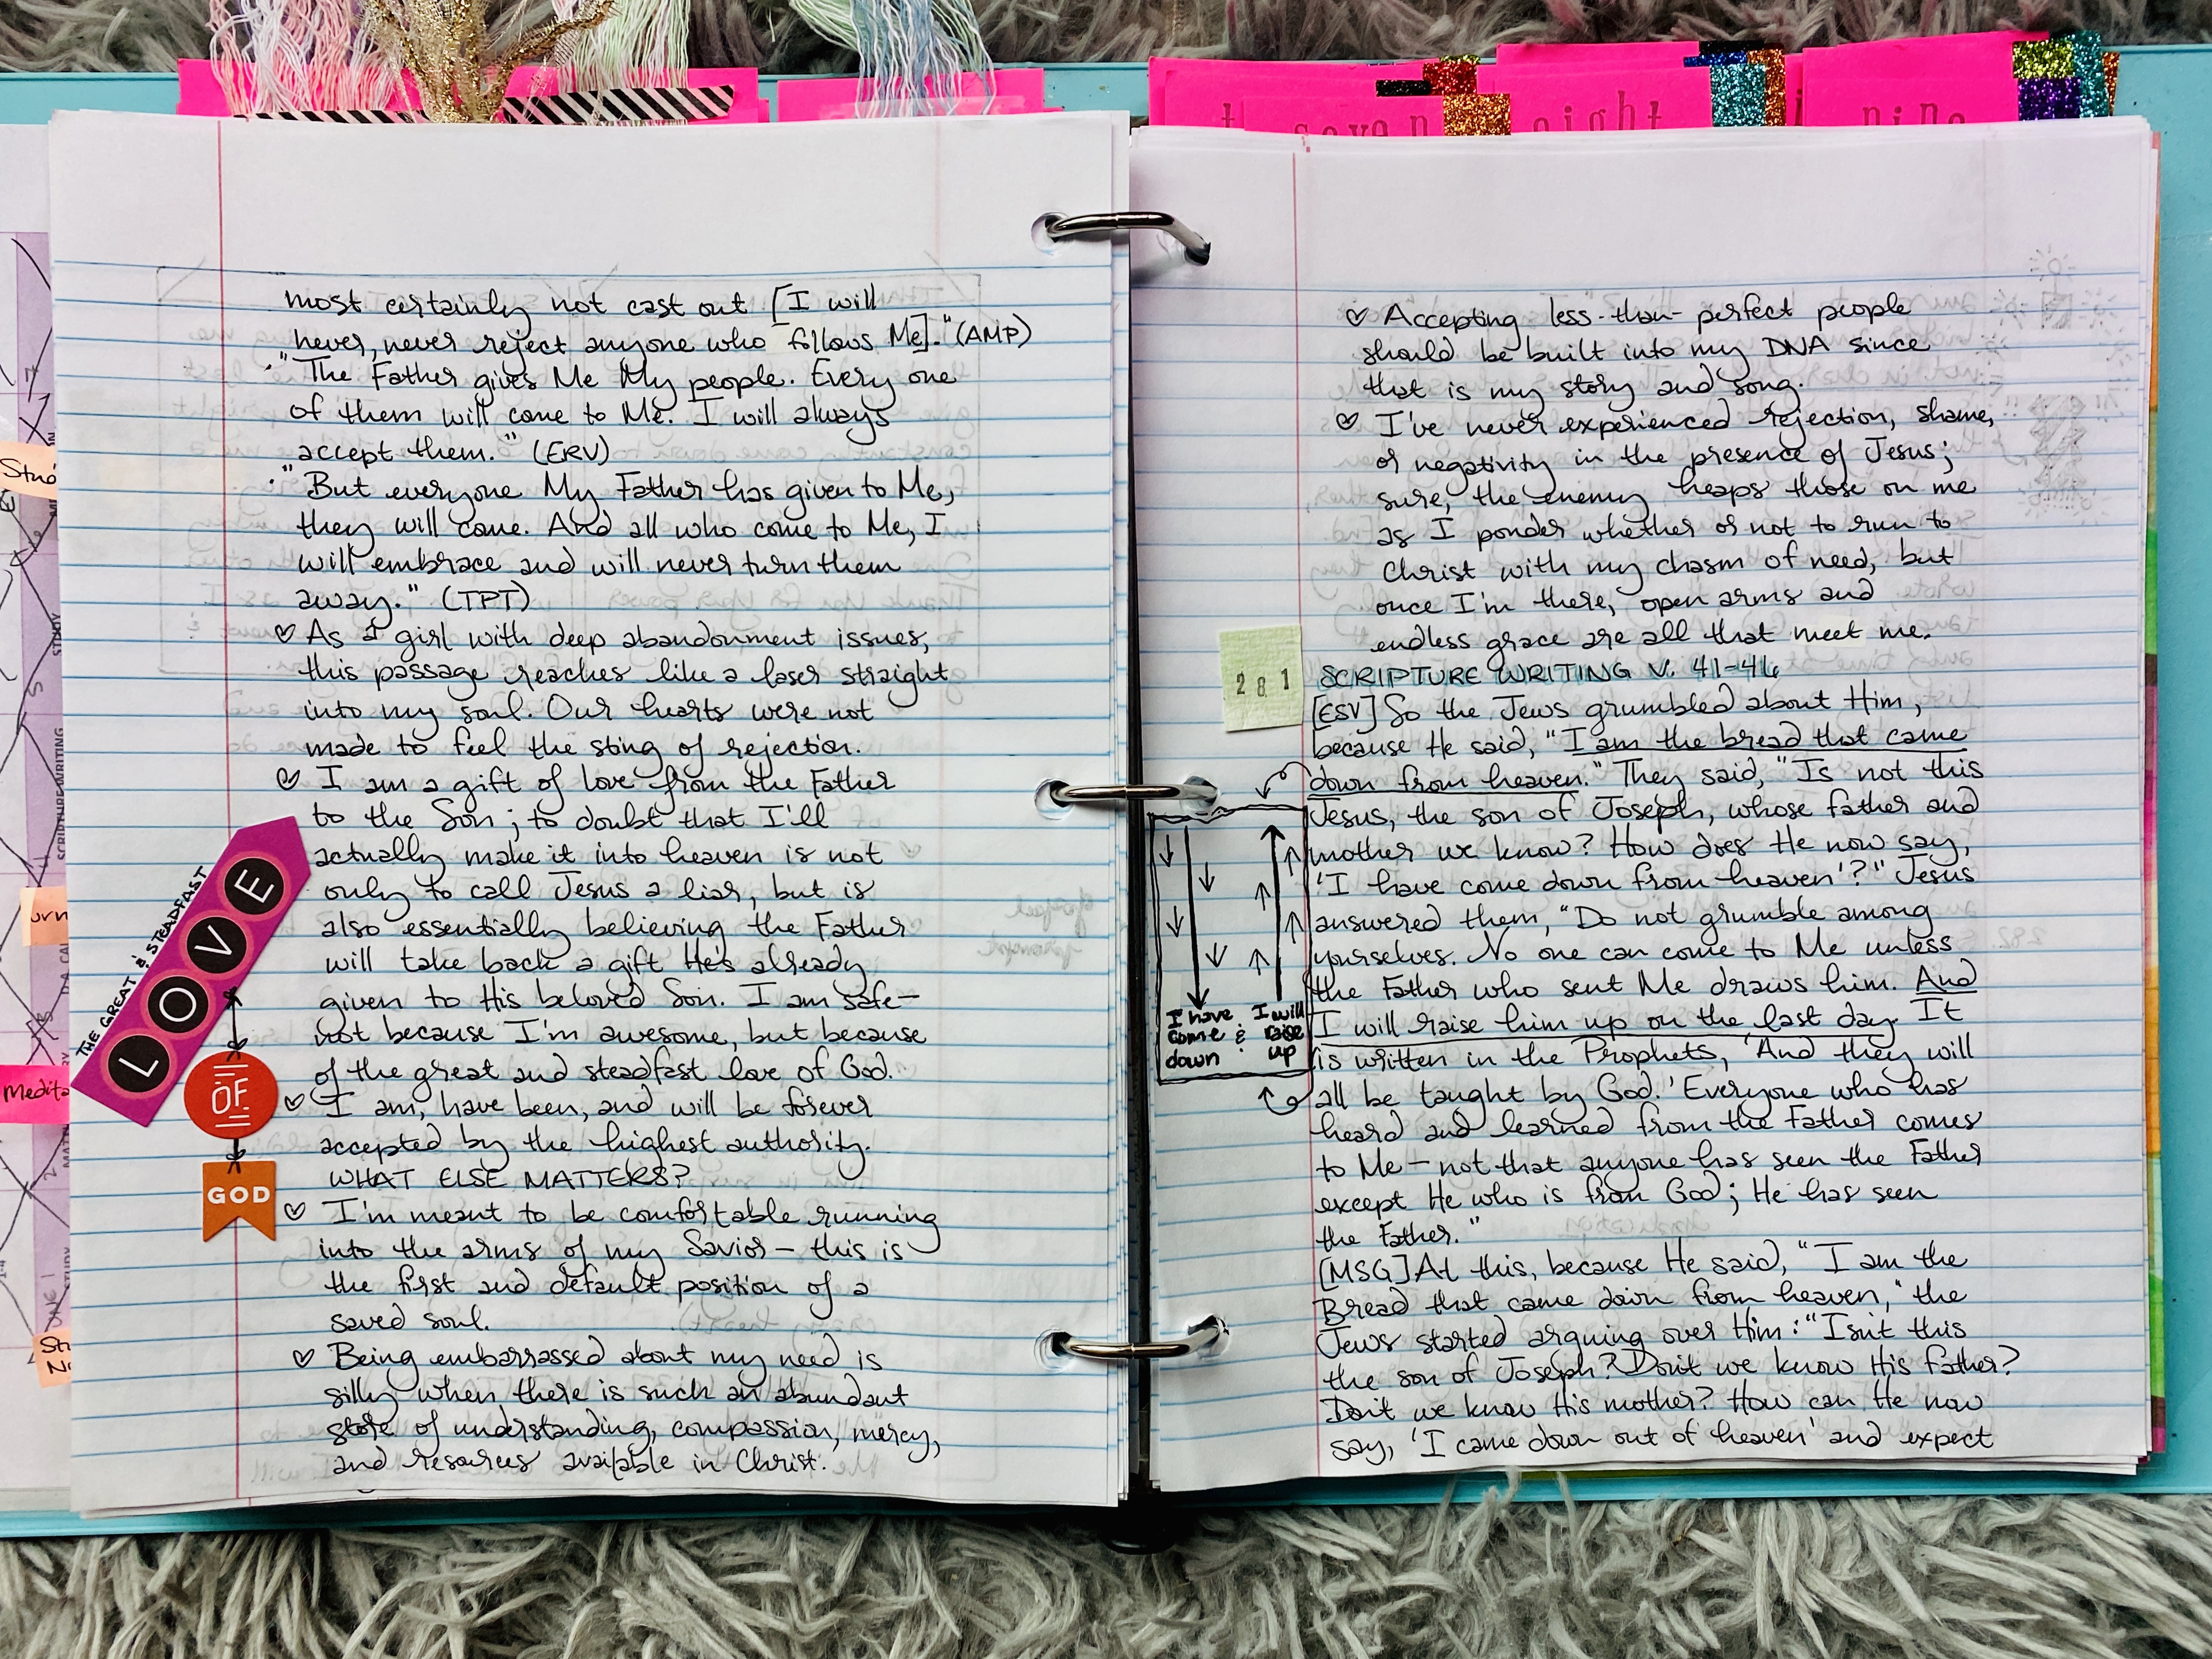 seven
eight
nine
most certainly not cast out [I will
never, never reject anyone who follows Me]." (AMP)
"The Father gives Me My people. Every one
of them will come to Me. I will always
accept them." (ERV)
"But everyone My Father has given to Me,
they will come. And all who come to Me, I
will embrace and will never turn them
away." (TPT)
♡ As a girl with deep abandonment issues,
this passage reaches like a laser straight
into my soul. Our hearts were not
made to feel the sting of rejection.
♡ I am a gift of love from the Father
to the Son; to doubt that I'll
actually make it into heaven is not
only to call Jesus a liar, but is
also essentially believing the Father
will take back a gift He's already
given to His beloved Son. I am safe—
not because I'm awesome, but because
of the great and steadfast love of God.
♡ I am, have been, and will be forever
accepted by the highest authority.
WHAT ELSE MATTERS?
♡ I'm meant to be comfortable running
into the arms of my Savior — this is
the first and default position of a
saved soul.
♡ Being embarrassed about my need is
silly when there is such an abundant
store of understanding, compassion, mercy,
and resources available in Christ.
THE GREAT & STEADFAST
LOVE
OF
GOD
♡ Accepting less-than-perfect people
should be built into my DNA since
that is my story and song.
♡ I've never experienced rejection, shame,
or negativity in the presence of Jesus;
sure, the enemy heaps those on me
as I ponder whether or not to run to
Christ with my chasm of need, but
once I'm there, open arms and
endless grace are all that meet me.
281
SCRIPTURE WRITING V. 41-46
[ESV] So the Jews grumbled about Him,
because He said, "I am the bread that came
down from heaven." They said, "Is not this
Jesus, the son of Joseph, whose father and
mother we know? How does He now say,
'I have come down from heaven'?" Jesus
answered them, "Do not grumble among
yourselves. No one can come to Me unless
the Father who sent Me draws him. And
I will raise him up on the last day. It
is written in the Prophets, 'And they will
all be taught by God.' Everyone who has
heard and learned from the Father comes
to Me — not that anyone has seen the Father
except He who is from God; He has seen
the Father."
[MSG] At this, because He said, "I am the
Bread that came down from heaven," the
Jews started arguing over Him: "Isn't this
the son of Joseph? Don't we know His father?
Don't we know His mother? How can He now
say, 'I came down out of heaven' and expect
I have
come
down
&
I will
raise
up